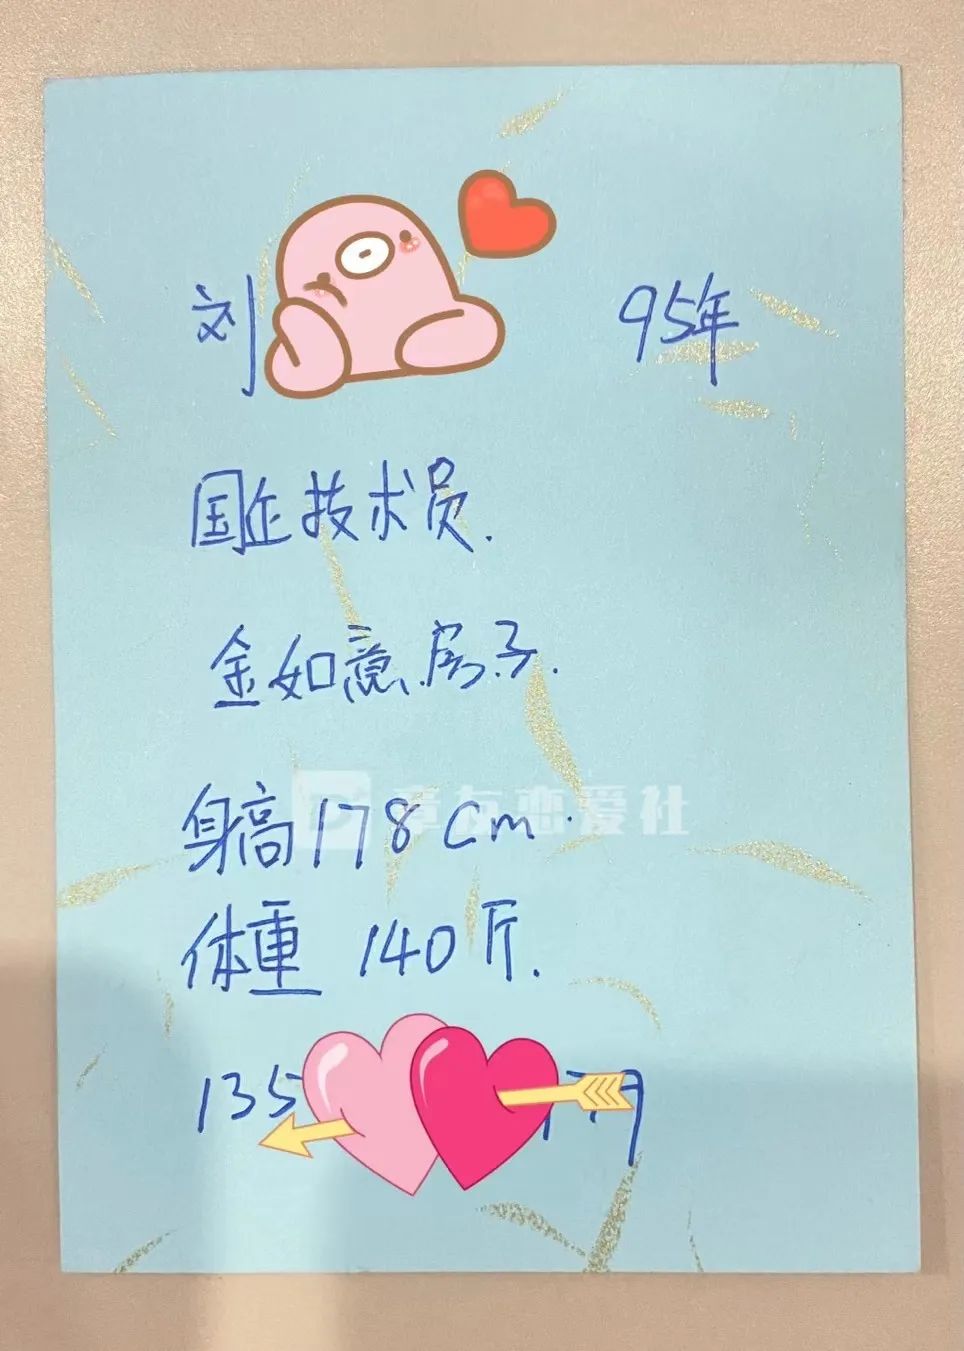 刘 95年
国企技术员.
金如意.房子.
身高178cm.
章友恋爱社
体重 140斤.
135